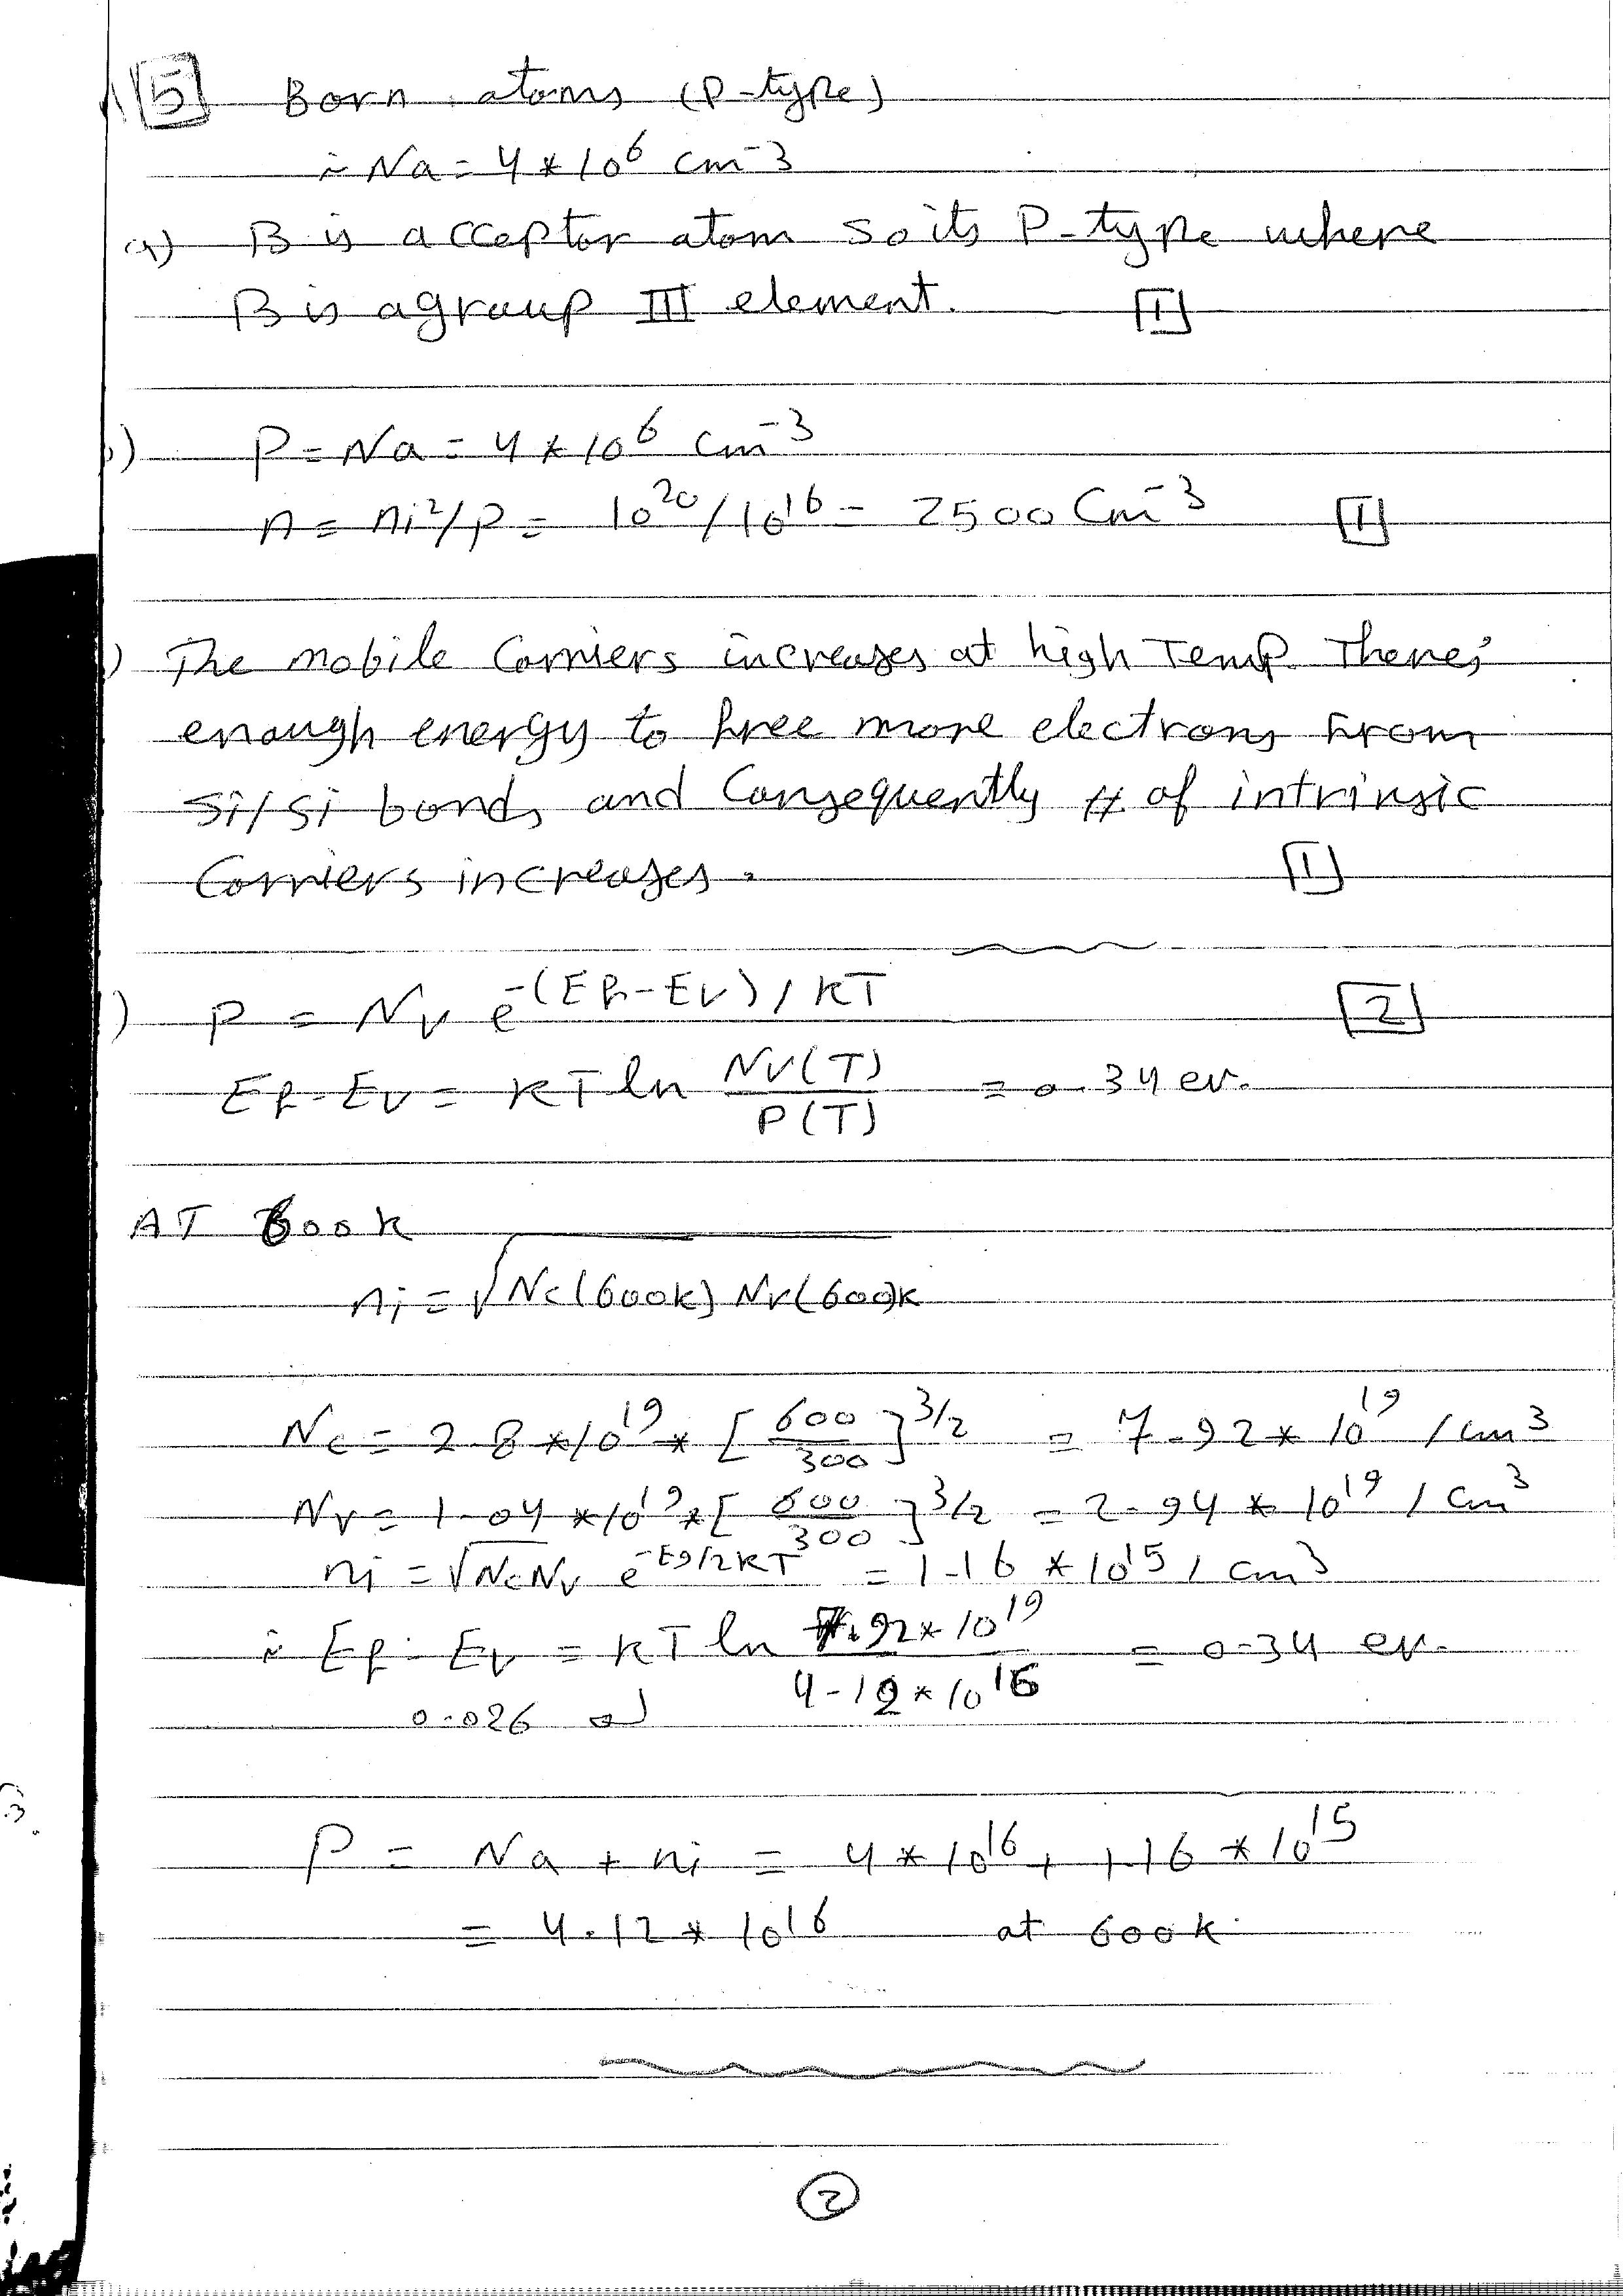 [5] Born atoms (P-type)
∴ Na = 4 * 10^6 cm^-3
a) B is acceptor atom so its P-type where
B is a group III element. [1]
) P = Na = 4 * 10^6 cm^-3
n = ni^2/p = 10^20/10^16 = 2500 Cm^-3 [1]
) The mobile Carriers increases at high Temp. There,
enough energy to free more electrons From
Si/Si bonds and Consequently # of intrinsic
Carriers increases. [1]
) P = Nv e^-(Ef-Ev)/KT [2]
Ef - Ev = KT ln Nv(T)/P(T) = 0.34 ev.
AT 600k
ni = √Nc(600k) Nv(600)k
Nc = 2.8 * 10^19 * [600/300]^3/2 = 7.92 * 10^19 / cm^3
Nv = 1.04 * 10^19 * [600/300]^3/2 = 2.94 * 10^19 / Cm^3
ni = √NcNv e^-Eg/2KT = 1.16 * 10^15 / cm^3
∴ Ef - Ev = KT ln 7.92 * 10^19/4.12 * 10^16 = 0.34 ev.
0.026
P = Na + ni = 4 * 10^16 + 1.16 * 10^15
= 4.12 * 10^16 at 600k.
2